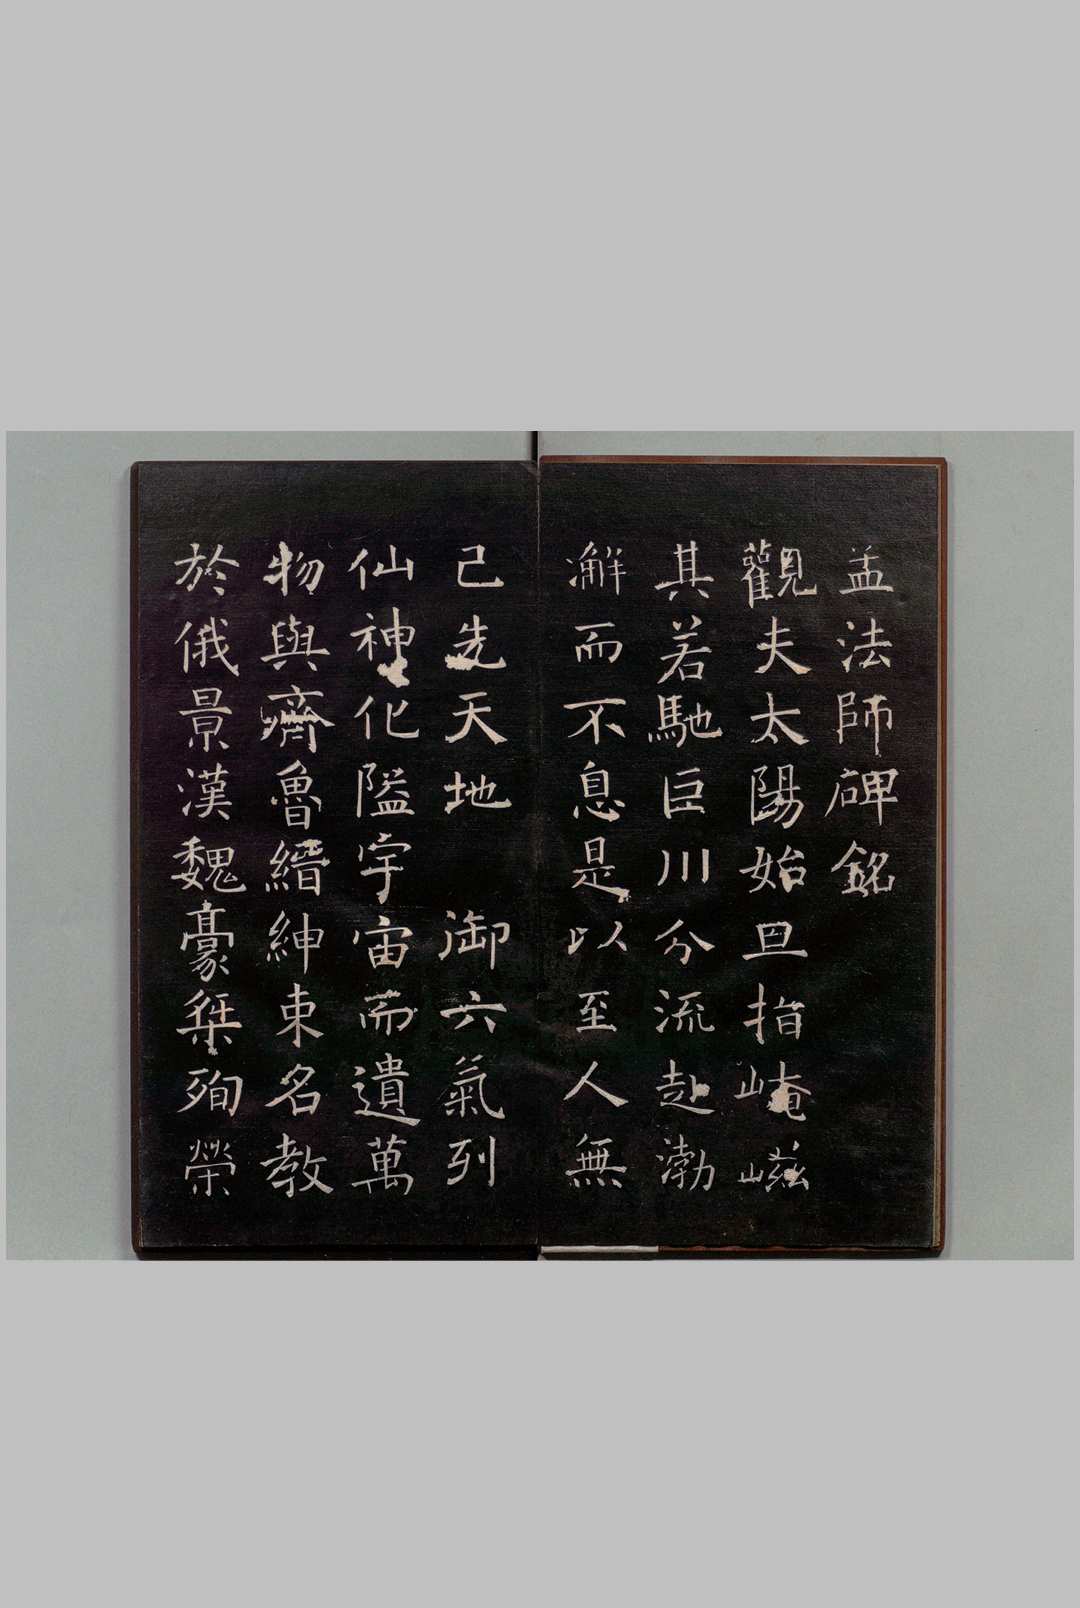 孟法師碑銘
觀夫太陽始旦指崦嵫
其若馳巨川分流赴渤
澥而不息是以至人無
己先天地　御六氣列
仙神化隘宇宙而遺萬
物與齊魯縉紳束名教
於俄景漢魏豪桀殉榮